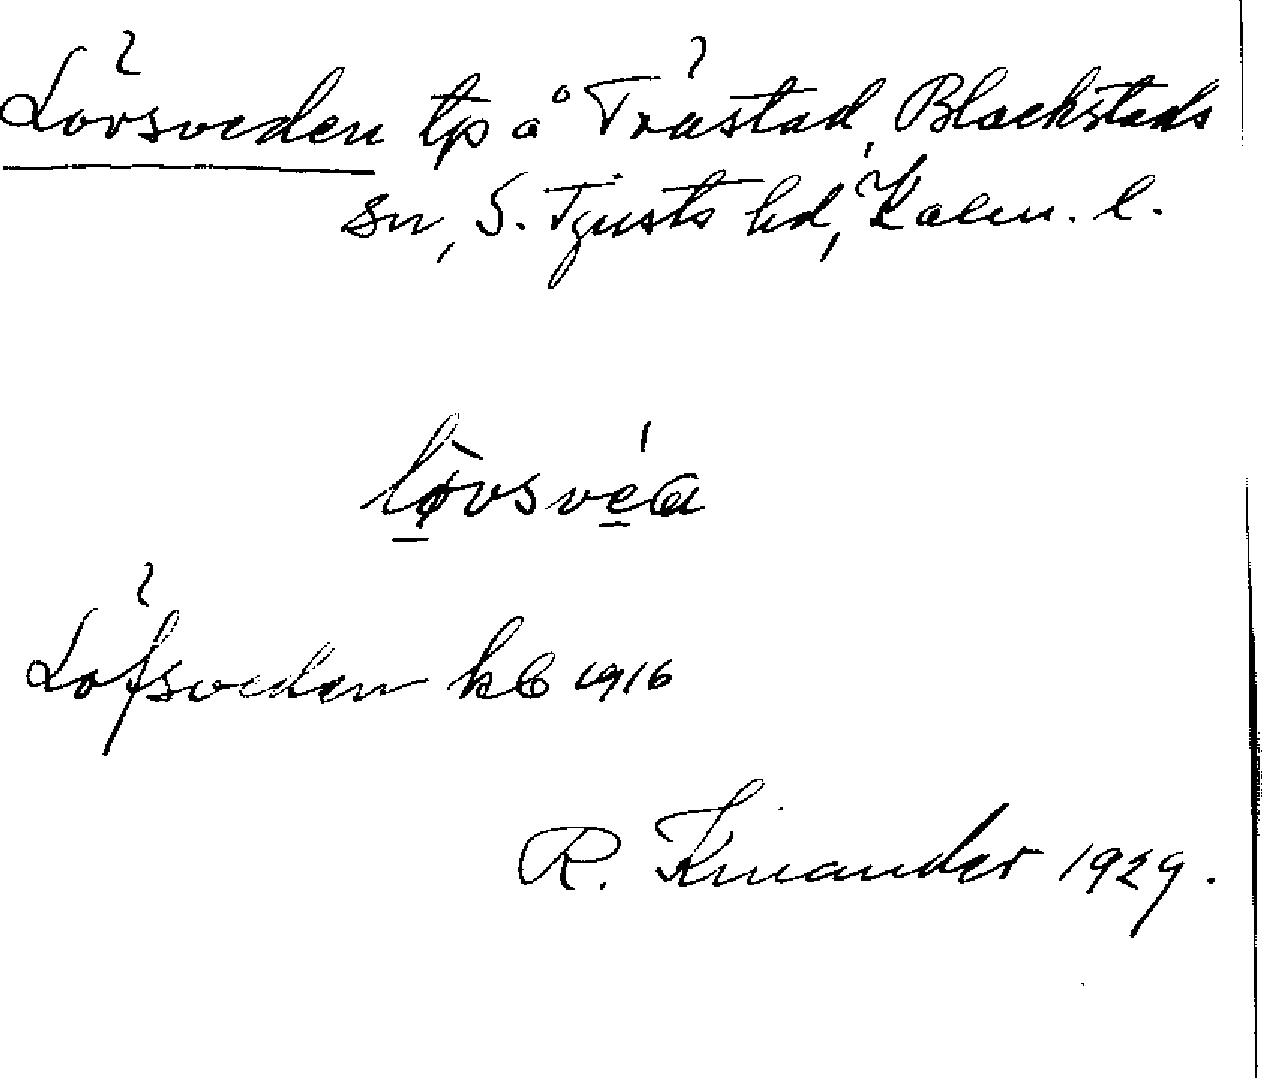 Lövsveden tp å Trästad, Blackstads
sn, S. Tjusts hd, Kalm. l.
lø̀vsvéa
Löfsveden kb 1916
R. Kinander 1929.